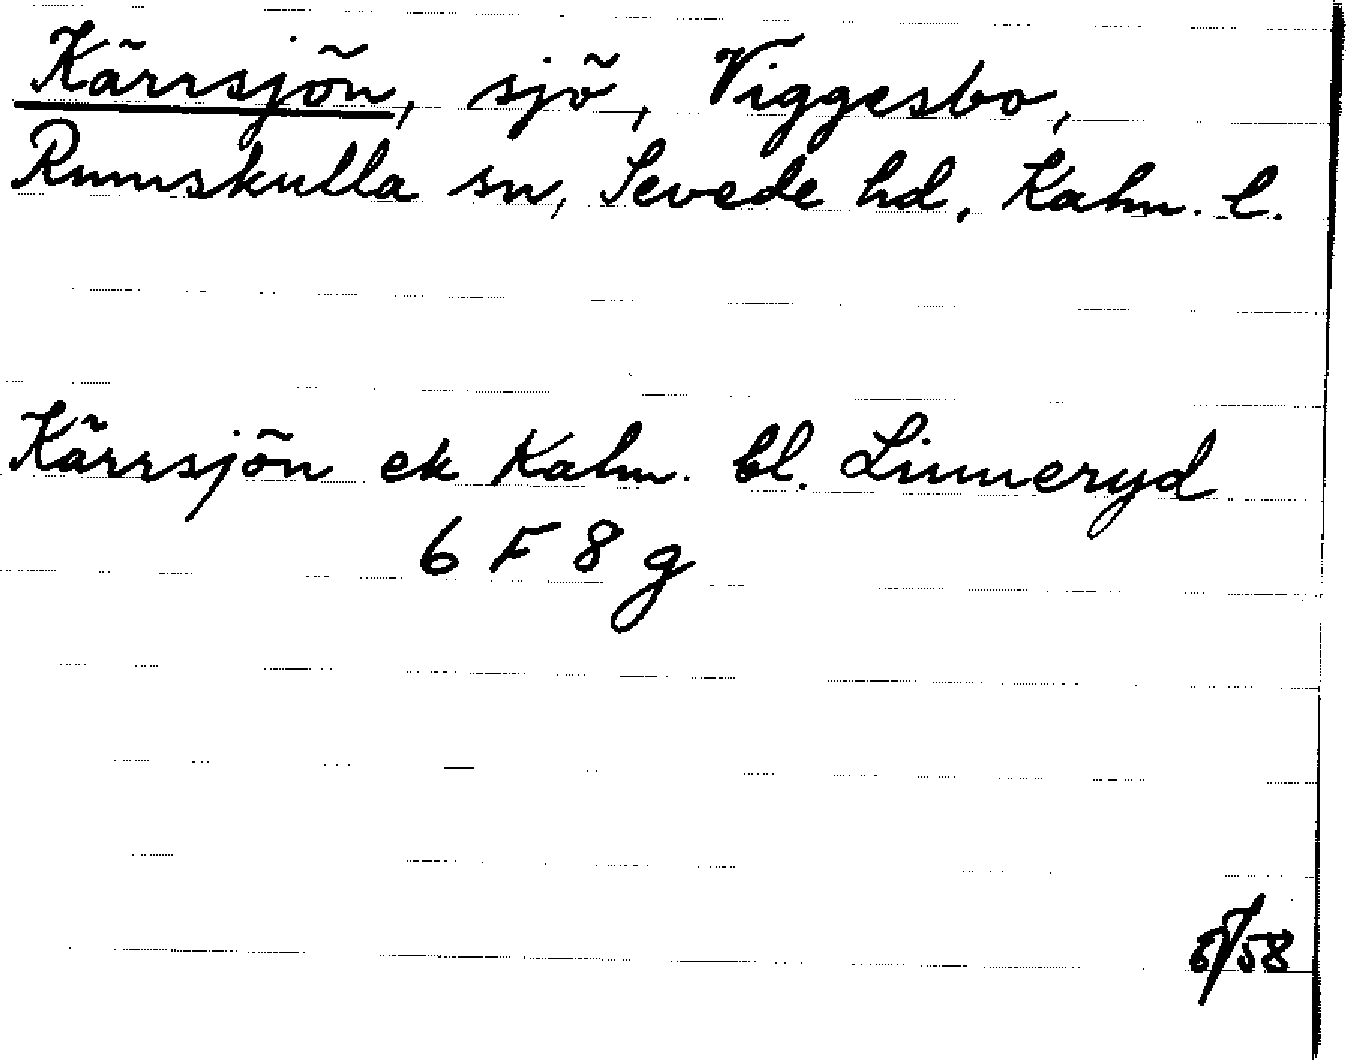 Kärrsjön, sjö, Viggesbo,
Rumskulla sn, Sevede hd, Kalm. l.
Kärrsjön ek Kalm. bl. Linneryd
6 F 8 g